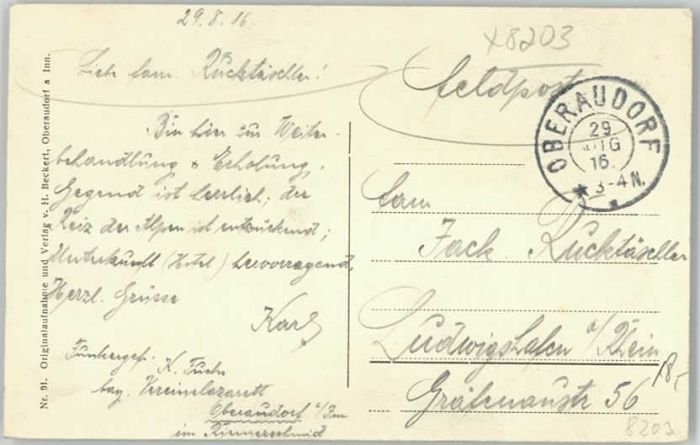 29.8.16.
x8203
Liebe Fam. Rücktäschler!
Feldpost
Bin hier zur Weiter-
behandlung & Erholung.
Gegend ist herrlich; der
Reiz der Alpen ist entzückend;
Unterkunft (Hotel) hervorragend.
Herzl. Grüsse
Karl
Funkergefr. K. Fuchs
bay. Vereinslazarett
Oberaudorf a/Inn
im
OBERAUDORF
29
AUG
16.
3-4 N.
Fam
Jack. Rücktäschler
Ludwigshafen a/Rhein
Gräfenaustr 56
18,-
8203
Nr. 91. Originalaufnahme und Verlag v. H. Beckert, Oberaudorf a Inn.